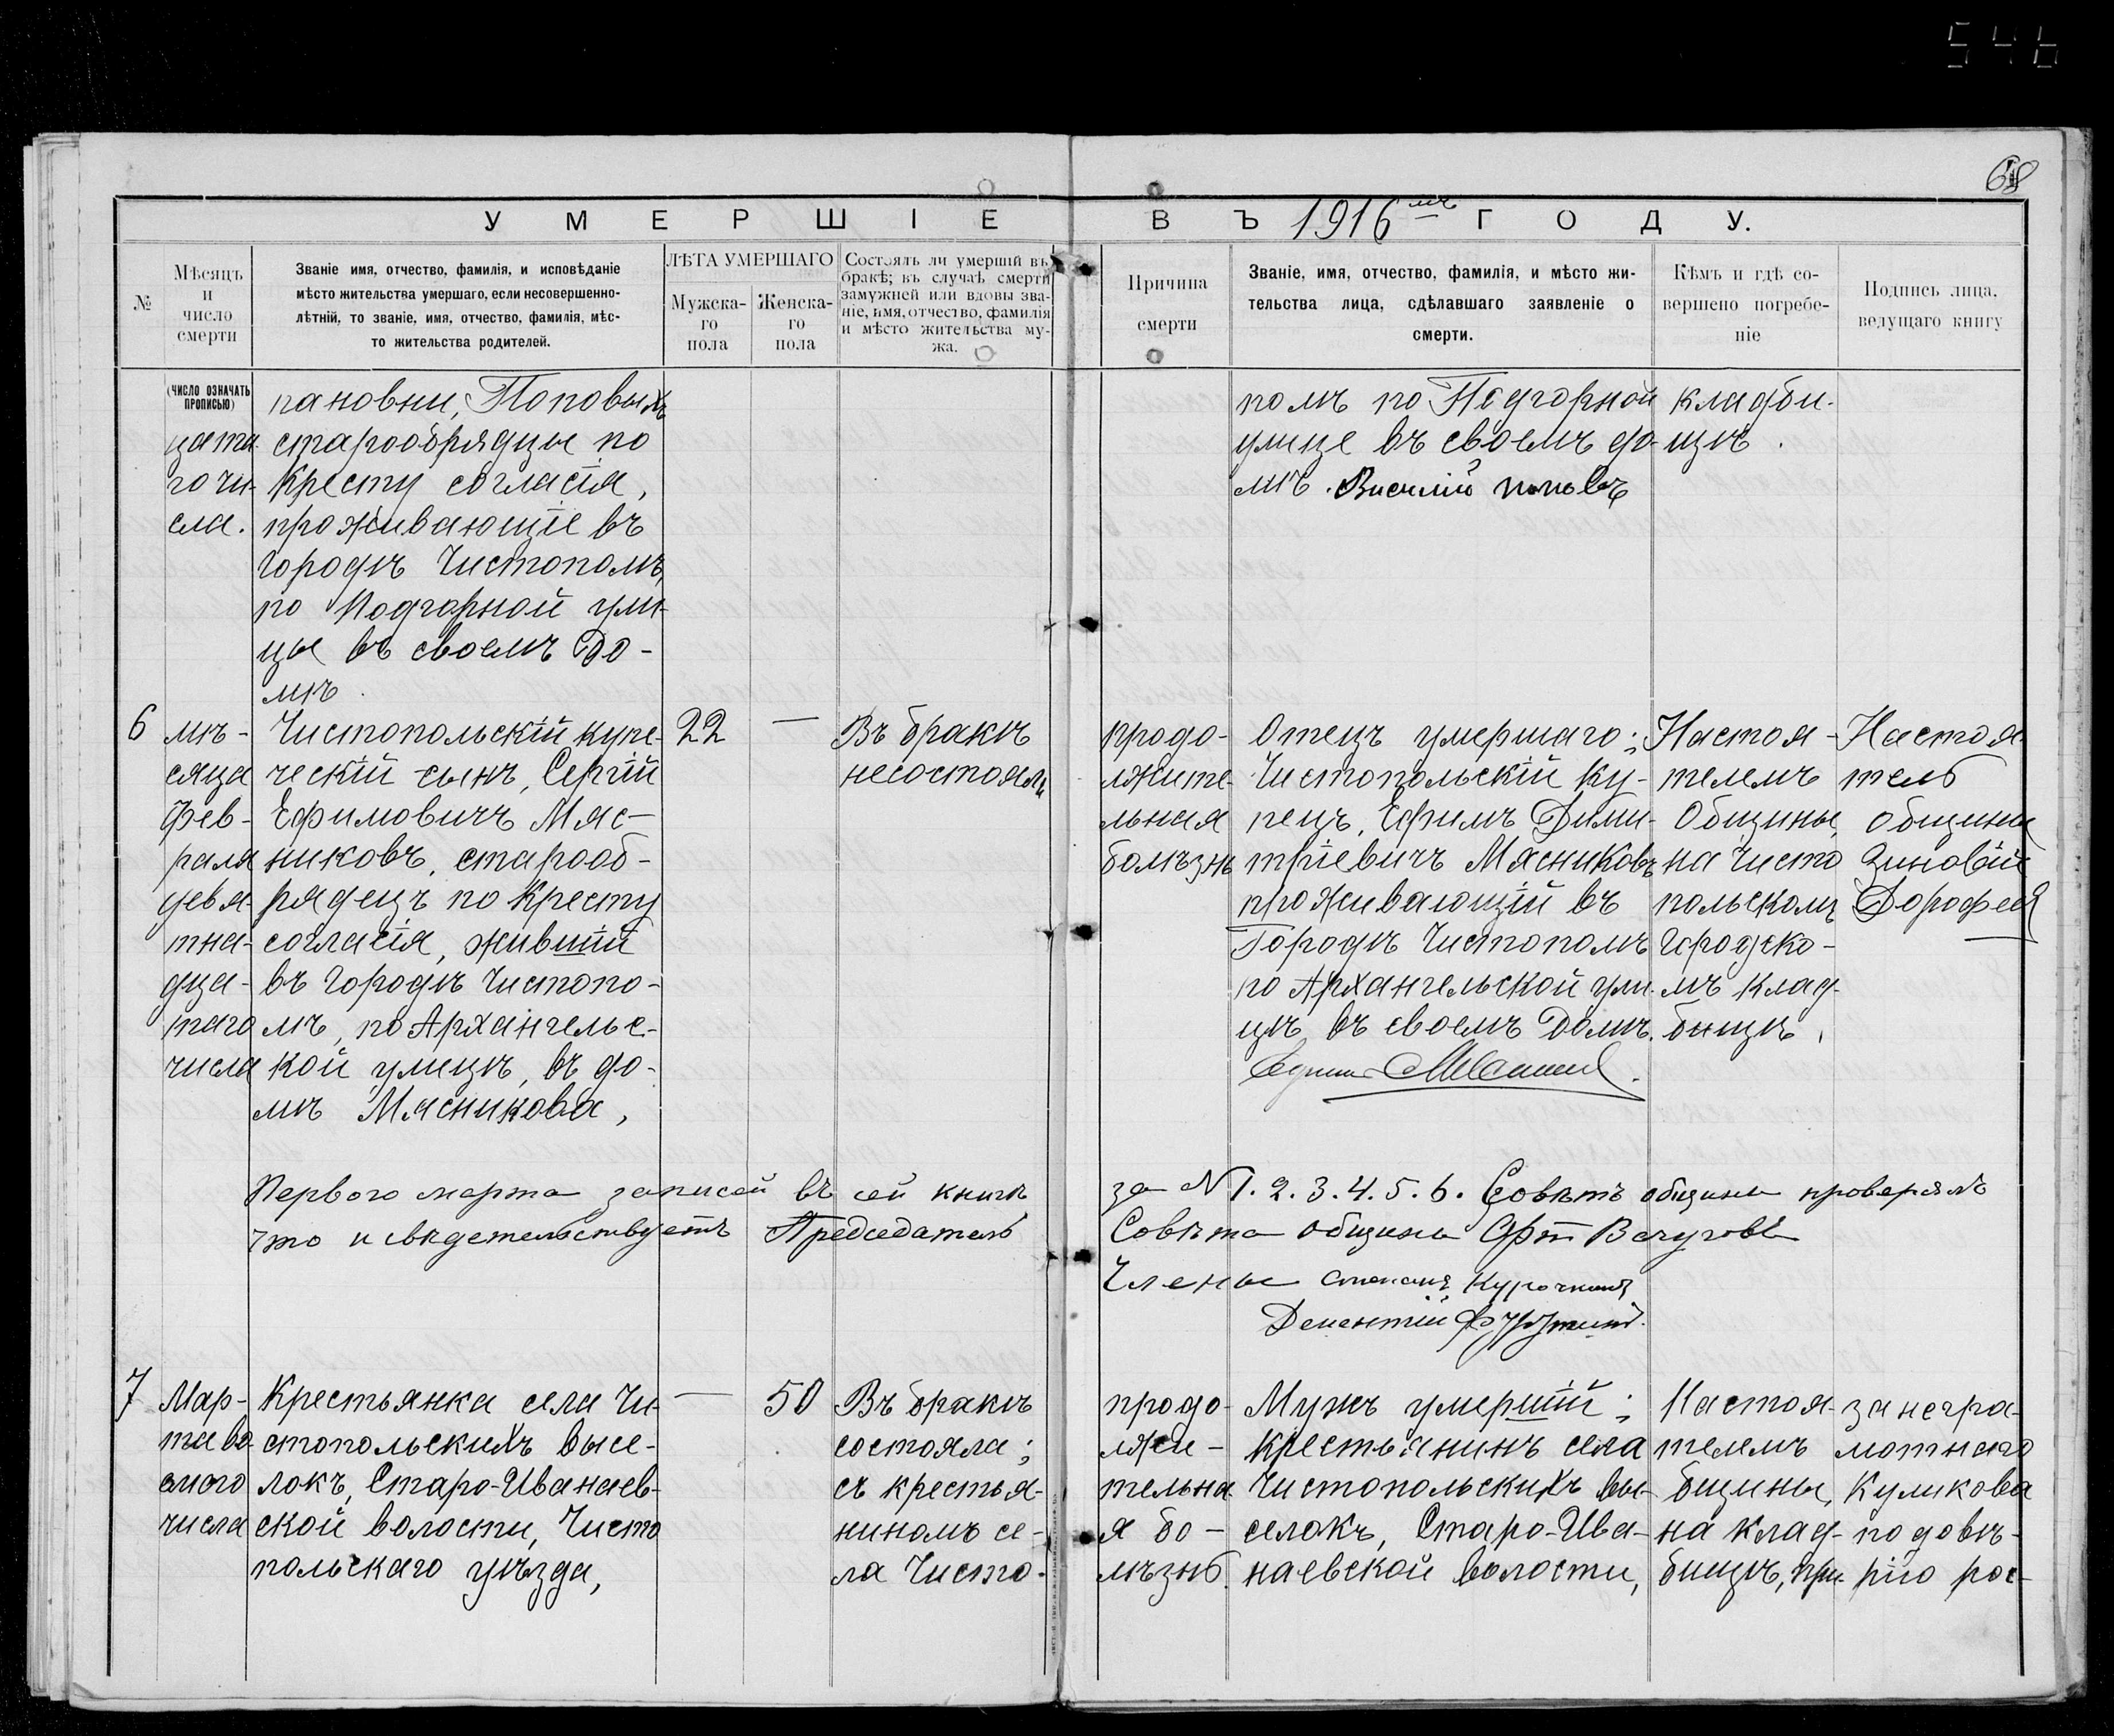 546
68
УМЕРШІЕ ВЪ 1916мъ ГОДУ.
№
Мѣсяцъ и число смерти
Званіе имя, отчество, фамилія, и исповѣданіе
мѣсто жительства умершаго, если несовершенно-
лѣтній, то званіе, имя, отчество, фамилія, мѣс-
то жительства родителей.
ЛѢТА УМЕРШАГО
Мужска-
го
пола
Женска-
го
пола
Состоялъ ли умершій въ
бракѣ; въ случаѣ смерти
замужней или вдовы зва-
ніе, имя, отчество, фамилія
и мѣсто жительства му-
жа.
Причина
смерти
Званіе, имя, отчество, фамилія, и мѣсто жи-
тельства лица, сдѣлавшаго заявленіе о
смерти.
Кѣмъ и гдѣ со-
вершено погребе-
ніе
Подпись лица,
ведущаго книгу
(ЧИСЛО ОЗНАЧАТЬ
ПРОПИСЬЮ)
цата
го чи-
сла.
пановны, Поповыхъ
старообрядцы по
Кресту согласія,
проживающіе въ
Городѣ Чистополѣ,
по Подгорной ули-
цы въ своемъ До-
мѣ.
полѣ по Подгорной
улице въ своемъ до-
мѣ. Василий поповъ
кладби-
щѣ.
6
мѣ-
сяца
Фев-
раля
девя-
тна-
дца-
таго
числа
Чистопольскій купе-
ческій сынъ, Сергій
Ефимовичъ Мяс-
никовъ, старооб-
рядецъ по Кресту
согласія, жившій
въ Городѣ Чистопо-
лѣ, по Архангельс-
кой улицѣ, въ до-
мѣ Мясникова,
22
—
Въ бракѣ
несостоялъ
продо-
лжите-
льная
болѣзнь
Отецъ умершаго;
Чистопольскій Ку-
пецъ, Ефимъ Дими-
тріевичъ Мясниковъ
проживающій въ
Городѣ Чистополѣ
по Архангельской ули-
цѣ въ своемъ Домѣ.
Настоя-
телемъ
Общины,
на Чисто
польскомъ
Городско-
мъ клад-
бищѣ,
Настоя-
тель
общины
Зиновій
Дорофеев
Первого марта записей въ сей книгѣ за №1.2.3.4.5.6. Совѣтъ общины провѣрялъ
что и свидетельствуетъ Председатель Совѣта общины
Члены Степанъ Курочкинъ
Дементій
7
Мар-
та во
сьмого
числа
Крестьянка села Чи-
стопольскихъ высе-
локъ, Старо-Иванаев-
ской волости, Чисто
польскаго уѣзда,
—
50
Въ бракѣ
состояла;
съ крестья-
ниномъ се-
ла Чисто-
продо-
лжи-
тельна
я бо-
лѣзнь.
Мужъ умершій;
крестьянинъ села
Чистопольскихъ вы-
селокъ, Старо-Ива-
наевской волости,
Настоя-
телемъ
бщины,
на клад-
бищѣ, при
за негра-
мотнаго
Куликова
по довѣ-
рію рос-